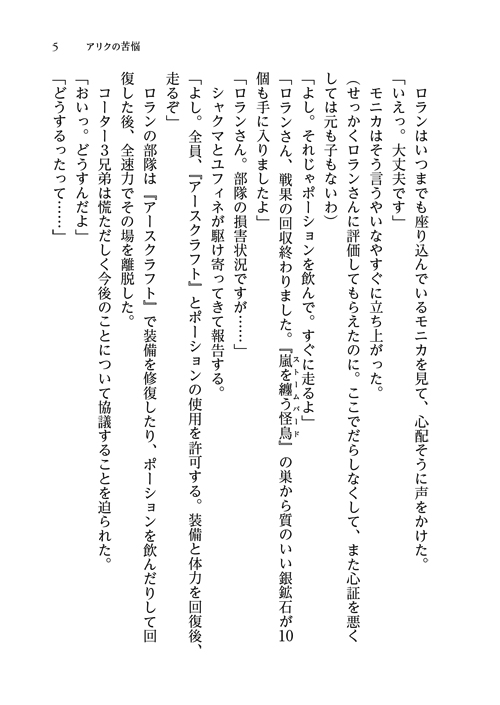 5　アリクの苦悩
　ロランはいつまでも座り込んでいるモニカを見て、心配そうに声をかけた。
「いえっ。大丈夫です」
　モニカはそう言うやいなやすぐに立ち上がった。
（せっかくロランさんに評価してもらえたのに。ここでだらしなくして、また心証を悪く
しては元も子もないわ）
「よし。それじゃポーションを飲んで。すぐに走るよ」
「ロランさん、戦果の回収終わりました。『嵐を纏う怪鳥（ストームバード）』の巣から質のいい銀鉱石が10
個も手に入りましたよ」
「ロランさん。部隊の損害状況ですが……」
　シャクマとユフィネが駆け寄ってきて報告する。
「よし。全員、『アースクラフト』とポーションの使用を許可する。装備と体力を回復後、
走るぞ」
　ロランの部隊は『アースクラフト』で装備を修復したり、ポーションを飲んだりして回
復した後、全速力でその場を離脱した。
　コーター３兄弟は慌ただしく今後のことについて協議することを迫られた。
「おいっ。どうすんだよ」
「どうするったって……」